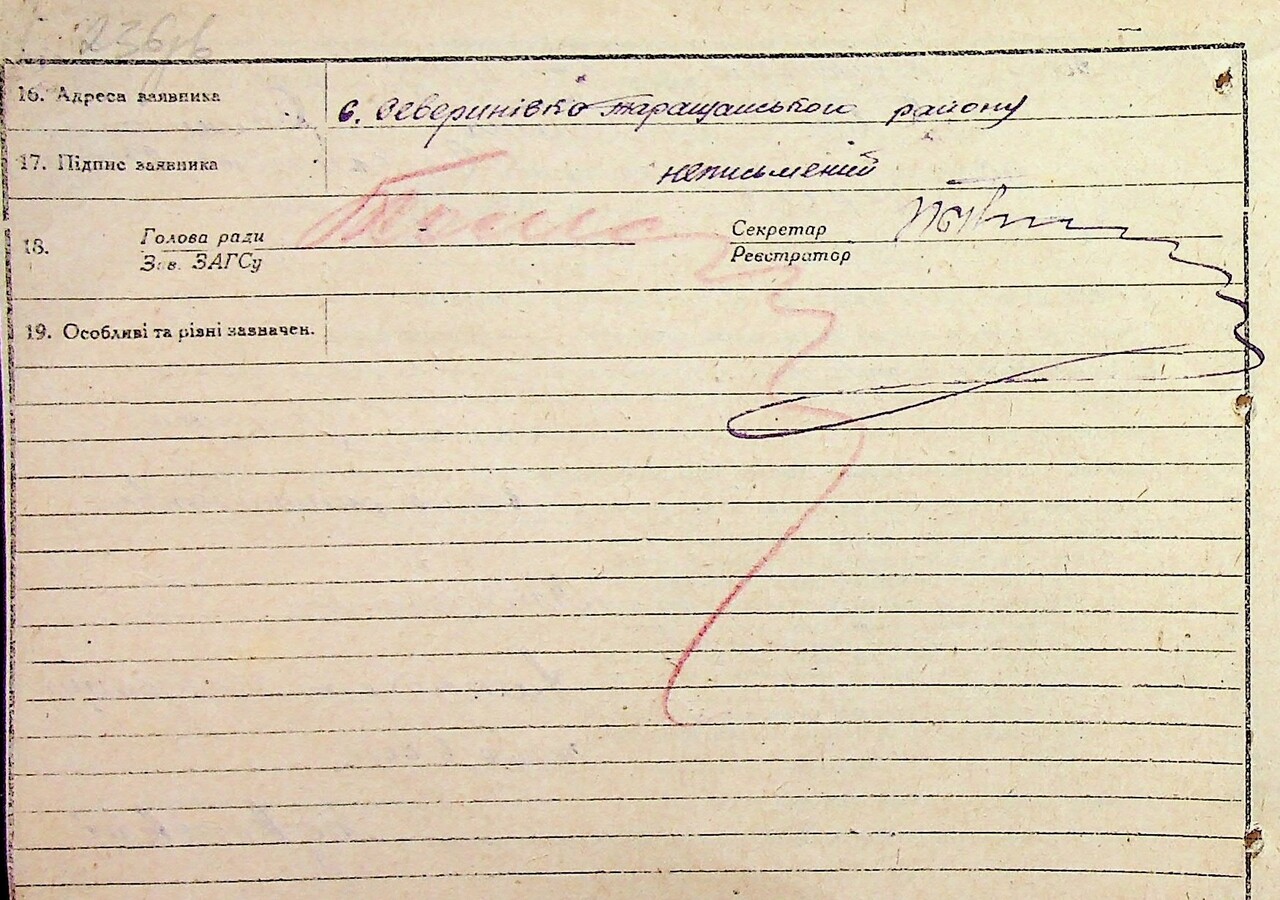 236зв
16. Адреса заявника с. Северинівко Таращанського району
17. Підпис заявника неписьмений
18. Голова ради Секретар
Зав. ЗАГСу Реєстратор
19. Особливі та різні зазначен.